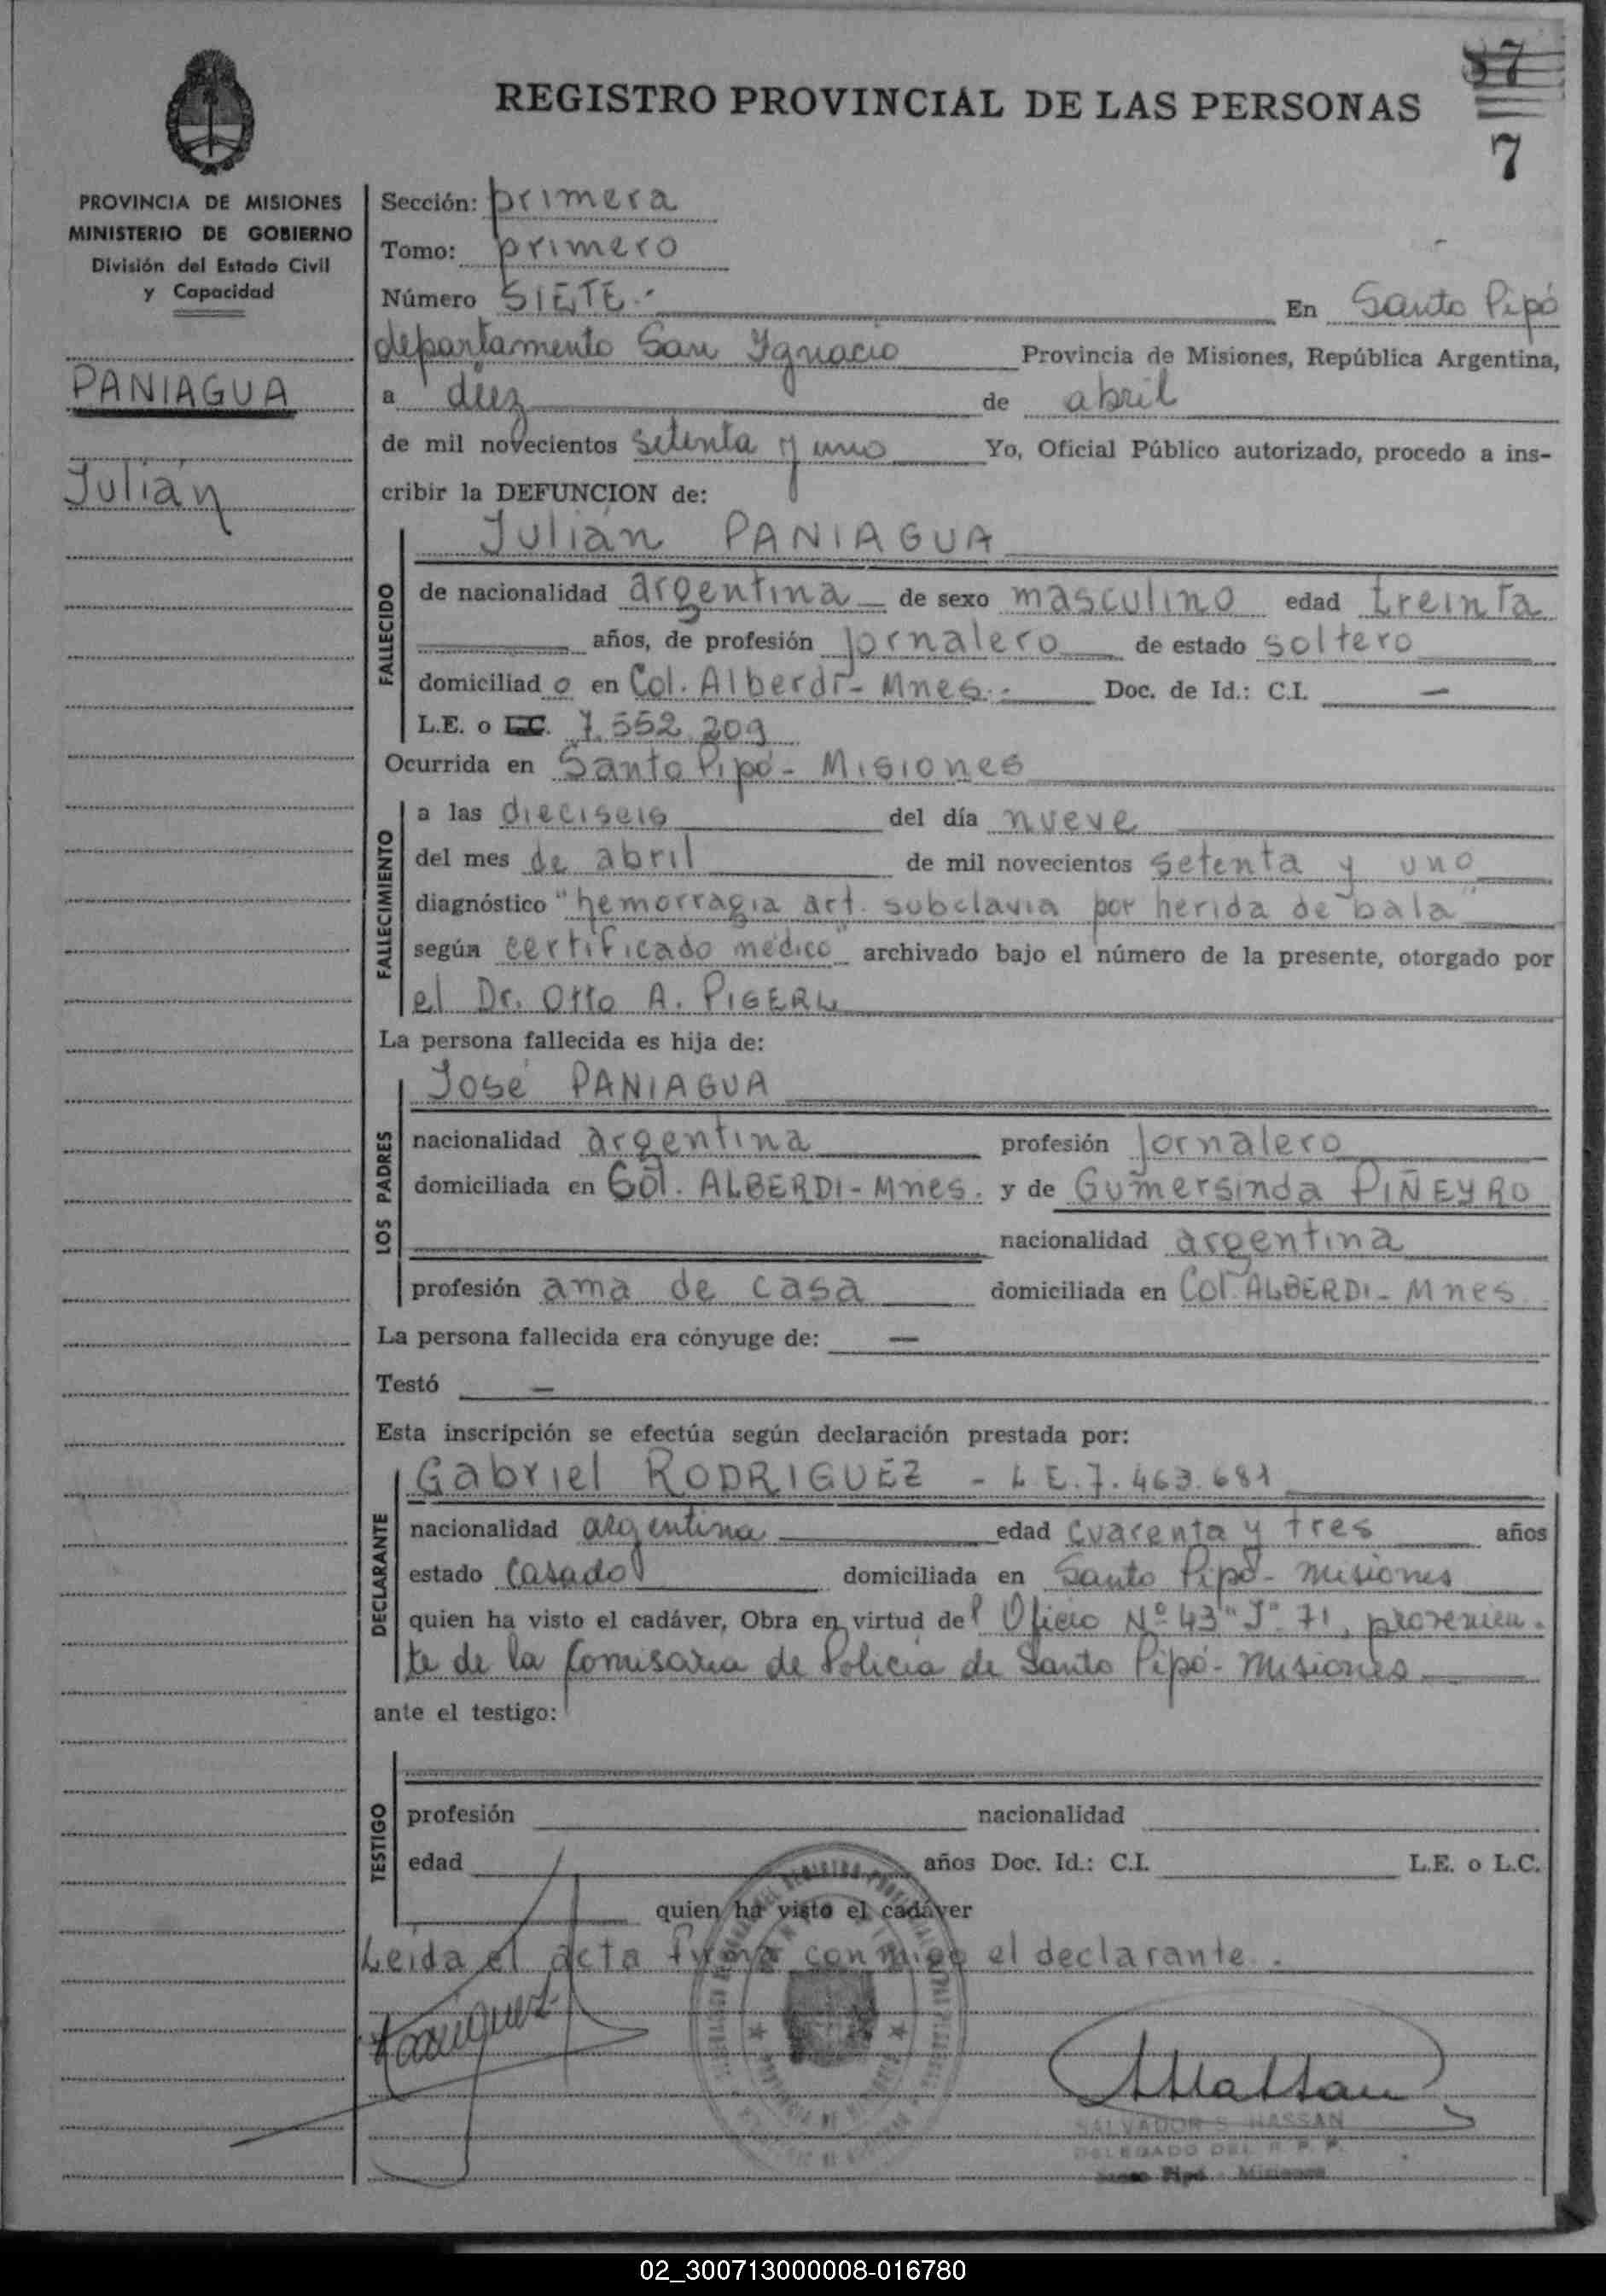 37
REGISTRO PROVINCIAL DE LAS PERSONAS
7
PROVINCIA DE MISIONES
MINISTERIO DE GOBIERNO
División del Estado Civil
y Capacidad
PANIAGUA
Julián
Sección: primera
Tomo: primero
Número SIETE.-
En Santo Pipó
departamento San Ygnacio Provincia de Misiones, República Argentina,
a diez de abril
de mil novecientos setenta y uno Yo, Oficial Público autorizado, procedo a ins-
cribir la DEFUNCION de:
FALLECIDO
Julián PANIAGUA
de nacionalidad argentina de sexo masculino edad treinta
años, de profesión jornalero de estado soltero
domiciliad o en Col. Alberdi- Mnes.- Doc. de Id.: C.I. —
L.E. o L.C. 7.552.209
Ocurrida en Santo Pipó - Misiones
FALLECIMIENTO
a las dieciseis del día nueve
del mes de abril de mil novecientos setenta y uno
diagnóstico "hemorragia art. subclavia por herida de bala"
según certificado médico archivado bajo el número de la presente, otorgado por
el Dr. Otto A. PIGERL
La persona fallecida es hija de:
LOS PADRES
José PANIAGUA
nacionalidad argentina profesión jornalero
domiciliada en Col. ALBERDI - Mnes. y de Gumersinda PIÑEYRO
nacionalidad argentina
profesión ama de casa domiciliada en Col. ALBERDI - Mnes.
La persona fallecida era cónyuge de: —
Testó —
Esta inscripción se efectúa según declaración prestada por:
DECLARANTE
Gabriel RODRIGUEZ - L.E. 7.463.681
nacionalidad argentina edad cuarenta y tres años
estado casado domiciliada en Santo Pipó - Misiones
quien ha visto el cadáver, Obra en virtud del Oficio Nº 43 "J" 71, provenien-
te de la Comisaria de Policía de Santo Pipó - Misiones
ante el testigo:
TESTIGO
profesión nacionalidad
edad años Doc. Id.: C.I. L.E. o L.C.
quien ha visto el cadáver
Leida el acta firma conmigo el declarante.-
SALVADOR S. HASSAN
DELEGADO DEL R. P. P.
Santo Pipó - Misiones
02_300713000008-016780